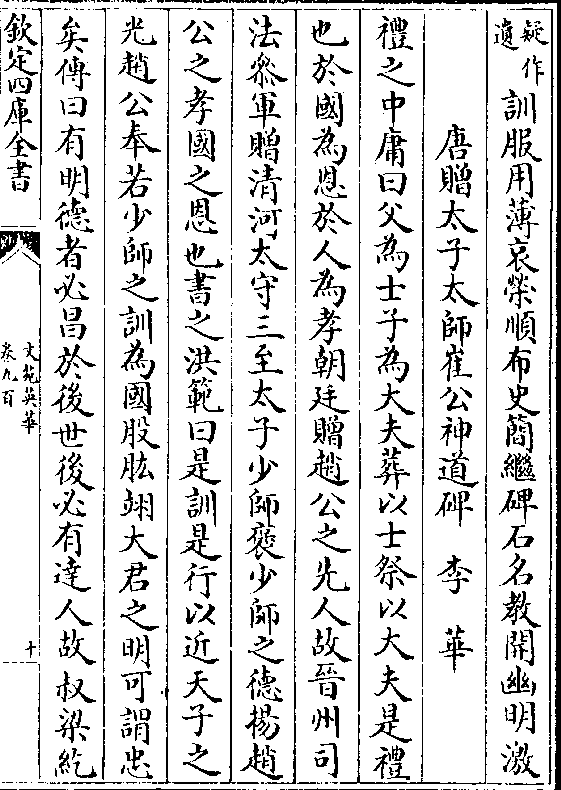 疑作
遺
訓服用薄哀榮順布史簡繼碑石名教開幽明激
唐贈太子太師崔公神道碑 李華
禮之中庸曰父為士子為大夫葬以士祭以大夫是禮
也於國為恩於人為孝朝廷贈趙公之先人故晉州司
法叅軍贈清河太守三至太子少師褒少師之德揚趙
公之孝國之恩也書之洪範曰是訓是行以近天子之
光趙公奉若少師之訓為國股肱翊大君之明可謂忠
矣傳曰有明德者必昌於後世後必有達人故叔梁紇
欽定四庫全書
文苑英華
卷九百
十